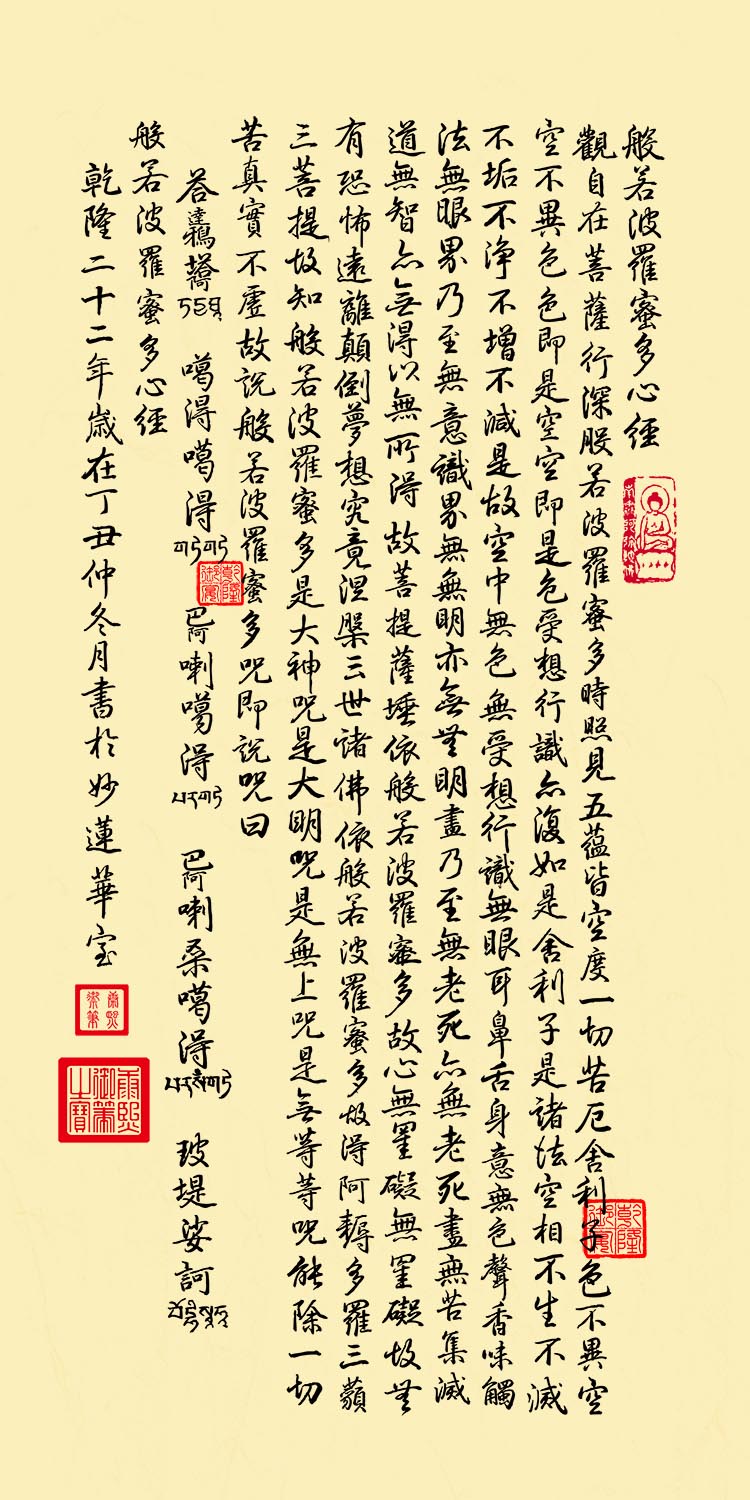 般若波羅蜜多心經
觀自在菩薩行深般若波羅蜜多時照見五蘊皆空度一切苦厄舍利子色不異空
空不異色色即是空空即是色受想行識亦復如是舍利子是諸法空相不生不滅
不垢不淨不增不減是故空中無色無受想行識無眼耳鼻舌身意無色聲香味觸
法無眼界乃至無意識界無無明亦無無明盡乃至無老死亦無老死盡無苦集滅
道無智亦無得以無所得故菩提薩埵依般若波羅蜜多故心無罣礙無罣礙故無
有恐怖遠離顛倒夢想究竟涅槃三世諸佛依般若波羅蜜多故得阿耨多羅三藐
三菩提故知般若波羅蜜多是大神咒是大明咒是無上咒是無等等咒能除一切
苦真實不虛故說般若波羅蜜多咒即說咒曰
荅 噶得噶得 巴阿喇噶得 巴阿喇桑噶得 玻堤娑訶
般若波羅蜜多心經
乾隆二十二年歲在丁丑仲冬月書於妙蓮華室
康熙御筆
康熙御筆之寶
乾隆御寶
乾隆御寶